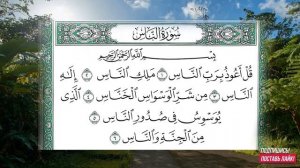 سُورَةُ النَّاسِ
بِسْمِ اللَّهِ الرَّحْمَٰنِ الرَّحِيمِ
قُلْ أَعُوذُ بِرَبِّ النَّاسِ ١ مَلِكِ النَّاسِ ٢ إِلَٰهِ
النَّاسِ ٣ مِن شَرِّ الْوَسْوَاسِ الْخَنَّاسِ ٤ الَّذِي
يُوَسْوِسُ فِي صُدُورِ النَّاسِ ٥
مِنَ الْجِنَّةِ وَالنَّاسِ ٦
ПОДПИШИСЬ
ПОСТАВЬ ЛАЙК!